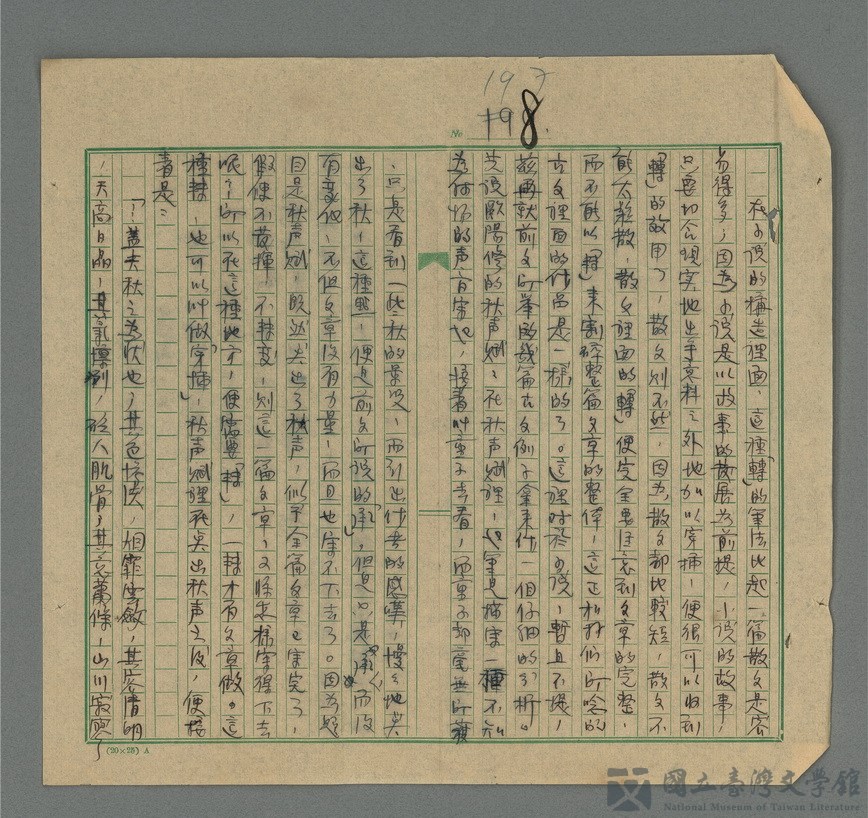 197
198.
No
在小說的構造裡面，這種「轉」的筆法比起一篇散文是容
易得多，因為小說是以故事的發展為前提，小說的故事，
只要切合現實地出乎意料之外地加以穿插，便很可以收到
「轉」的效用了，散文則不然，因為散文都比較短，散文不
能太鬆散，散文裡面的「轉」便完全要注意到文章的完整，
而不能以「轉」來割碎整篇文章的整體，這正和我們所唸的
古文裡面的作品是一樣的了。這裡對於小說，暫且不提，
茲再就前文所舉的幾篇古文例子拿來作一個仔細的分析。
先說歐陽修的秋聲賦：在秋聲賦裡，他單是描寫一種不知
為何物的声音寫起，接着叫童子去看，而童子却毫無所獲
，只是看到一些秋的景況，而引出作者的感嘆，慢慢地吳
出了秋，這種點，便是前文所說的「承」，但是只是「承」而没
有變化，不但文章没有力量，而且也寫不下去了。因為題
目是秋声賦，既然点出了秋声，似乎全篇文章已寫完了，
假使不發揮，不轉變，則這一篇文章，又將怎樣寫得下去
呢？所以在這種地方，便需要「轉」，一轉才有文章做。這
種轉，也可以叫做「穿插」，秋声賦裡在点出秋声之後，便接
着是：
「蓋夫秋之為狀也，其色慘淡，烟霏雲斂，其容清明
，天高日晶，其氣慄冽，砭人肌骨，其意蕭條，山川寂寥，
(20×25) A
國立臺灣文學館
National Museum of Taiwan Literature